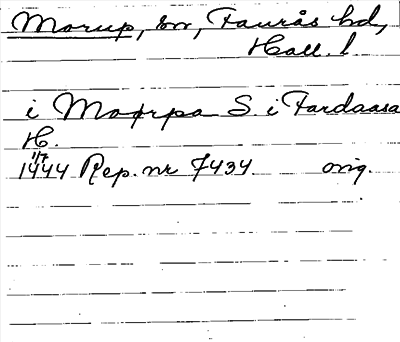 Morup, sn, Faurås hd,
Hall. l.
i Mogrpa S. i Fardaasa
H.
1/7
1444 Rep. nr 7434 orig.